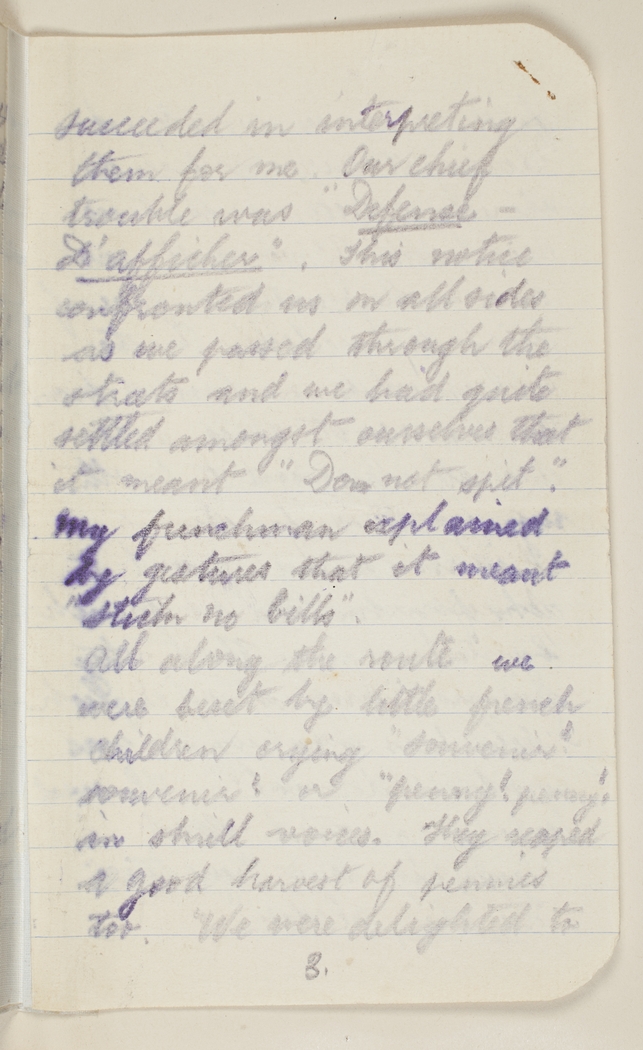 succeeded in interpreting
them for me. Our chief
trouble was "Defense -
D'afficher". This notice
confronted us on all sides
as we passed through the
streets and we had quite
settled amongst ourselves that
it meant "Do not spit".
My frenchman explained
by gestures that it meant
"stick no bills".
All along the route we
were beset by little french
children crying "souvenir!
souvenir! or "penny! penny!
in shrill voices. They reaped
a good harvest of pennies
too. We were delighted to
3.